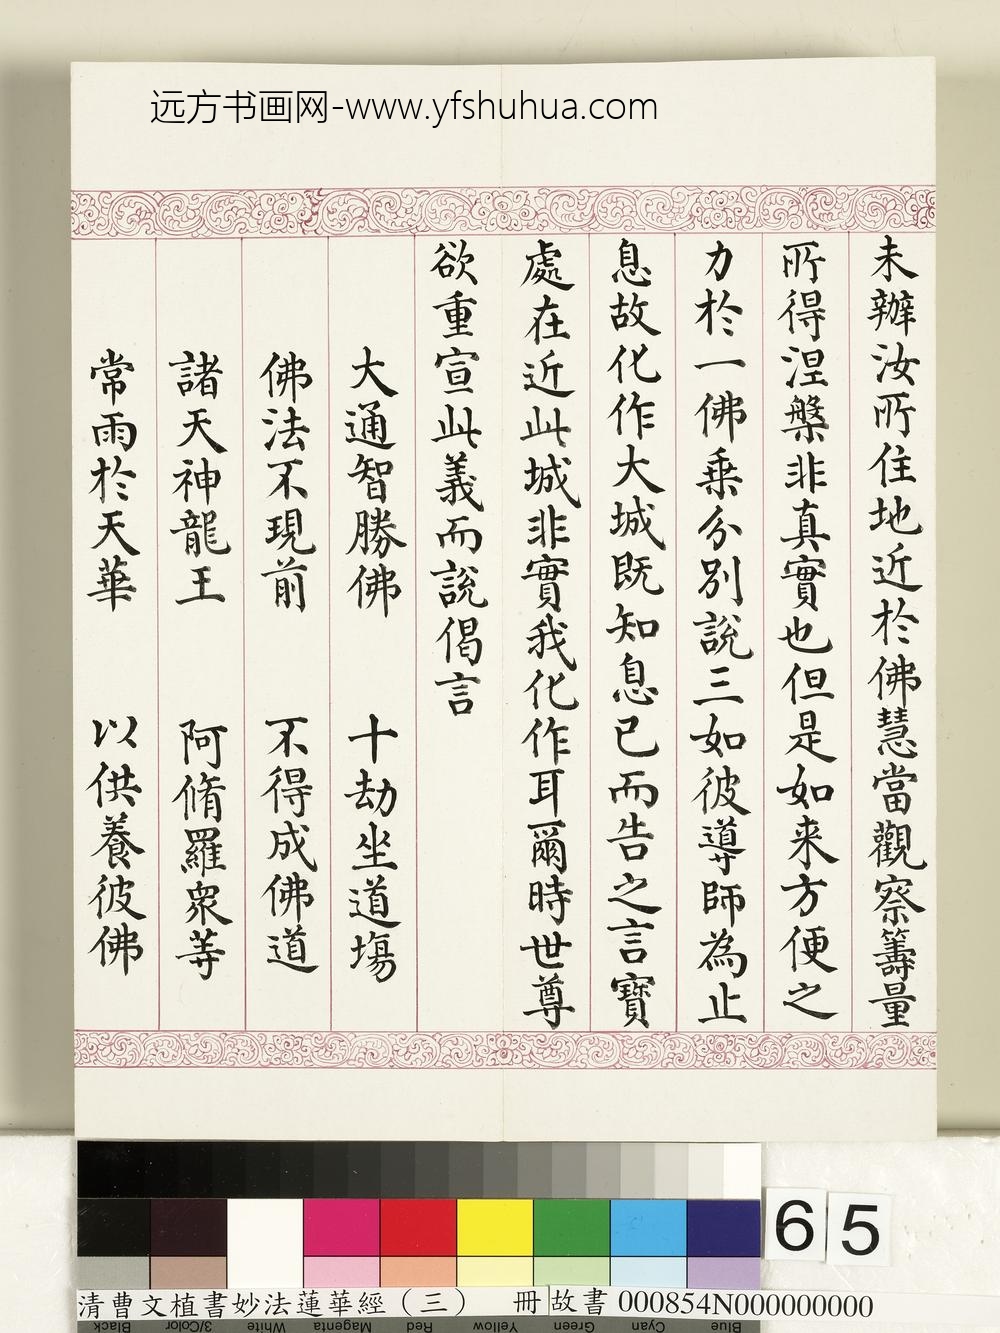 远方书画网-www.yfshuhua.com
未辦汝所住地近於佛慧當觀察籌量
所得涅槃非真實也但是如来方便之
力於一佛乗分別說三如彼導師為止
息故化作大城既知息已而告之言寶
處在近此城非實我化作耳爾時世尊
欲重宣此義而說偈言
大通智勝佛　十劫坐道場
佛法不現前　不得成佛道
諸天神龍王　阿脩羅衆等
常雨於天華　以供養彼佛
65
清曹文植書妙法蓮華經（三）　冊 故書 000854N000000000
Black 3/Color White Magenta Red Yellow Green Cyan Blue